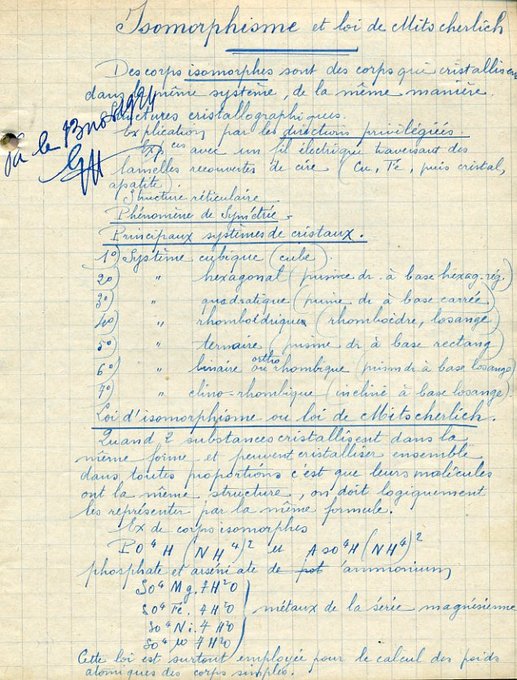 Isomorphisme et loi de Mitscherlich
Des corps isomorphes sont des corps qui cristallisent
dans le même système, de la même manière.
Structures cristallographiques.
Explication par les directions privilégiées.
vu le 13 nov 1924
Exces avec un fil électrique traversant des
lamelles recouvertes de cire (Cu, Fe, puis cristal,
apatite)
Structure réticulaire
Phénomène de Symétrie.
Principaux systèmes de cristaux.
1°) Système cubique (cube)
2°) " hexagonal (prisme dr. à base hexag. rég.)
3°) " quadratique (prisme dr à base carrée)
4°) " rhomboédrique (rhomboèdre, losange)
5°) " ternaire (prisme dr à base rectang)
6°) " binaire ou ortho rhombique (prism dr à base losange)
7°) " clino-rhombique (incliné à base losange)
Loi d'isomorphisme ou loi de Mitscherlich.
Quand 2 substances cristallisent dans la
même forme et peuvent cristalliser ensemble
dans toutes proportions c'est que leurs molécules
ont la même structure, on doit logiquement
les représenter par la même formule.
Ex de corps isomorphes
PO⁴H(NH⁴)² et AsO⁴H(NH⁴)²
phosphate et arséniate de pot d'ammonium
SO⁴Mg.7H²O
SO⁴Fe.7H²O
SO⁴Ni.7H²O
SO⁴ 7H²O
métaux de la série magnésienne
Cette loi est surtout employée pour le calcul des poids
atomiques des corps simples.